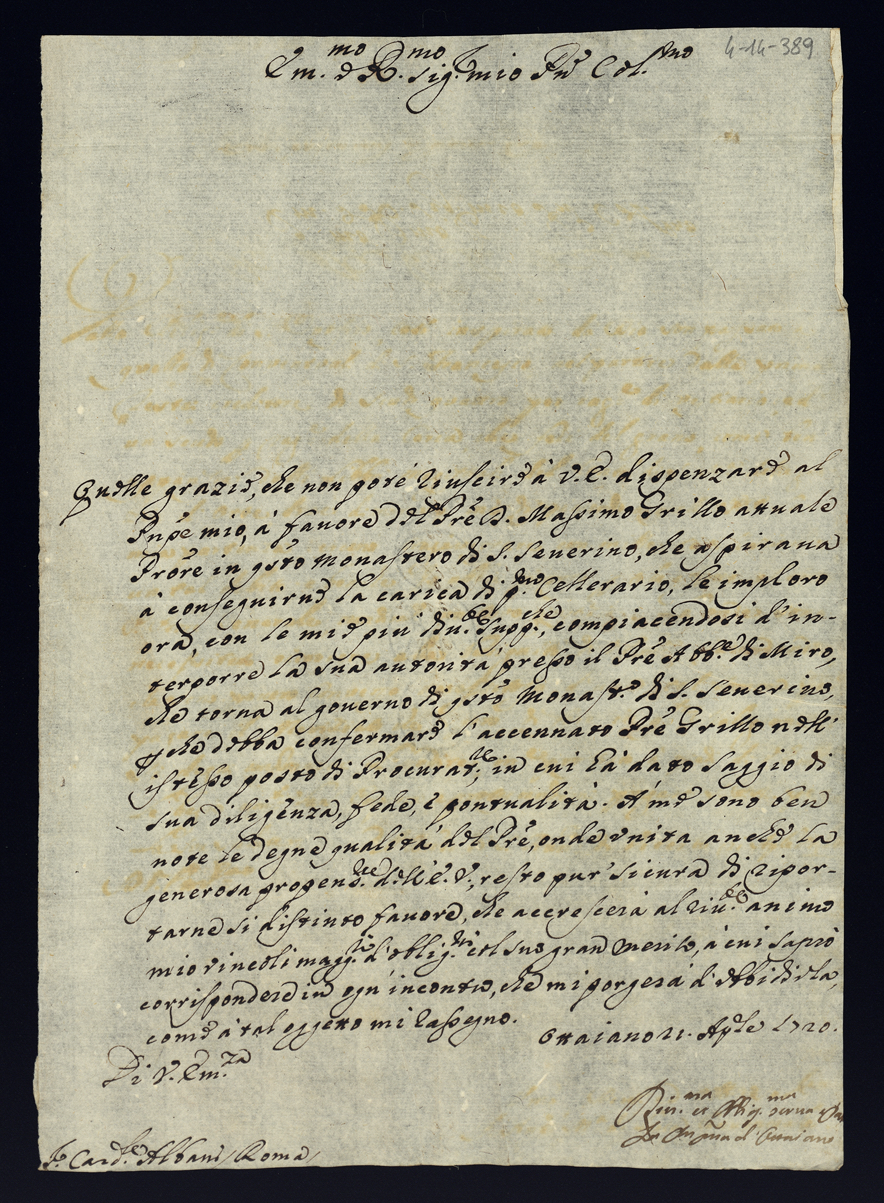 4-14-389
Em.mo e R.mo Sig.r mio Pñe Col.mo
Quelle grazie, che non poté riuscire à V. E. dispenzare al
Pnpe mio, à favore del Pre D. Massimo Grillo attuale
Prore in qsto Monastero di S. Severino, che aspirava
à conseguirne la carica di p.mo Cellerario, le imploro
ora, con le mie piu' div.te supp.che, compiacendosi d' in-
terporre la sua autorità presso il Pre Abb.e di Miro,
che torna al governo di qsto Monast.o di S. Severino,
che debba confermare l'accennato Pre Grillo nell'
istesso posto di Procurat.re, in cui hà dato saggio di
sua diligenza, fede, è pontualità. A me sono ben
note le degne qualità del Pre, onde unita anche la
generosa propen.ne dell' E. V., resto pur' sicura di ripor-
tarne si distinto favore, che accrescerà al riv.te animo
mio vincoli magg.ri d'oblig.ni col suo gran merito, à cui saprò
corrispondere in ogn' incontro, che mi porgerà d' obbidirla,
come à tal oggetto mi rassegno.
Ottaiano 21. Aple 1720.
Di V. Em.za
Div.ma et Oblig.ma serva
d'Ottaiano
Card.le Albani / Roma /